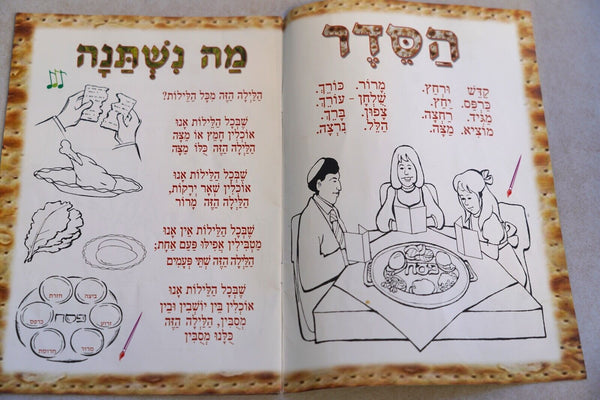 הַסֵּדֶר
קַדֵּשׁ וּרְחַץ.
כַּרְפַּס. יַחַץ.
מַגִּיד. רָחְצָה.
מוֹצִיא. מַצָּה.
מָרוֹר. כּוֹרֵךְ.
שֻׁלְחָן - עוֹרֵךְ.
צָפוּן. בָּרֵךְ.
הַלֵּל. נִרְצָה.
פסח
מַה נִּשְׁתַּנָּה
הַלַּיְלָה הַזֶּה מִכָּל הַלֵּילוֹת?
שֶׁבְּכָל הַלֵּילוֹת אָנוּ
אוֹכְלִין חָמֵץ אוֹ מַצָּה
הַלַּיְלָה הַזֶּה כֻּלּוֹ מַצָּה
שֶׁבְּכָל הַלֵּילוֹת אָנוּ
אוֹכְלִין שְׁאָר יְרָקוֹת,
הַלַּיְלָה הַזֶּה מָרוֹר
שֶׁבְּכָל הַלֵּילוֹת אֵין אָנוּ
מַטְבִּילִין אֲפִילוּ פַּעַם אַחַת;
הַלַּיְלָה הַזֶּה שְׁתֵּי פְּעָמִים
שֶׁבְּכָל הַלֵּילוֹת אָנוּ
אוֹכְלִין בֵּין יוֹשְׁבִין וּבֵין
מְסֻבִּין, הַלַּיְלָה הַזֶּה
כֻּלָּנוּ מְסֻבִּין
ביצה
חזרת
זרוע
פסח
כרפס
מרור
חרוסת